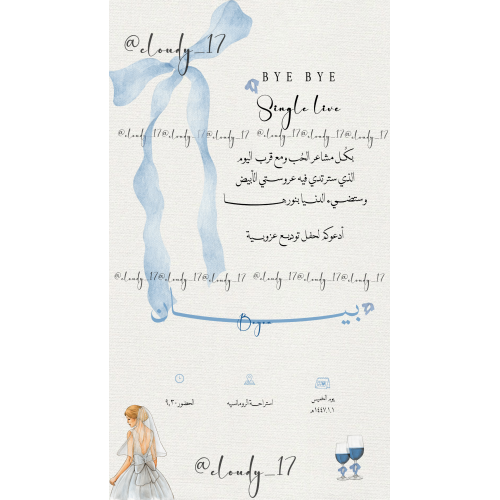 @cloudy_17
BYE BYE
Single live
@cloudy_17 @cloudy_17 @cloudy_17 @cloudy_17 @cloudy_17 @cloudy_17
بكُل مشاعر الحُب ومع قرب اليوم
الذي سترتدي فيه عروستي الأبيض
وستضيء الدنيا بنورها
أدعوكم لحفل توديع عزوبية
@cloudy_17 @cloudy_17 @cloudy_17 @cloudy_17 @cloudy_17 @cloudy_17
بيان
Bayan
يوم الخميس
١٤٤٧،١،١هـ
استراحة الرومانسيه
الحضور ٩،٣٠
@cloudy_17